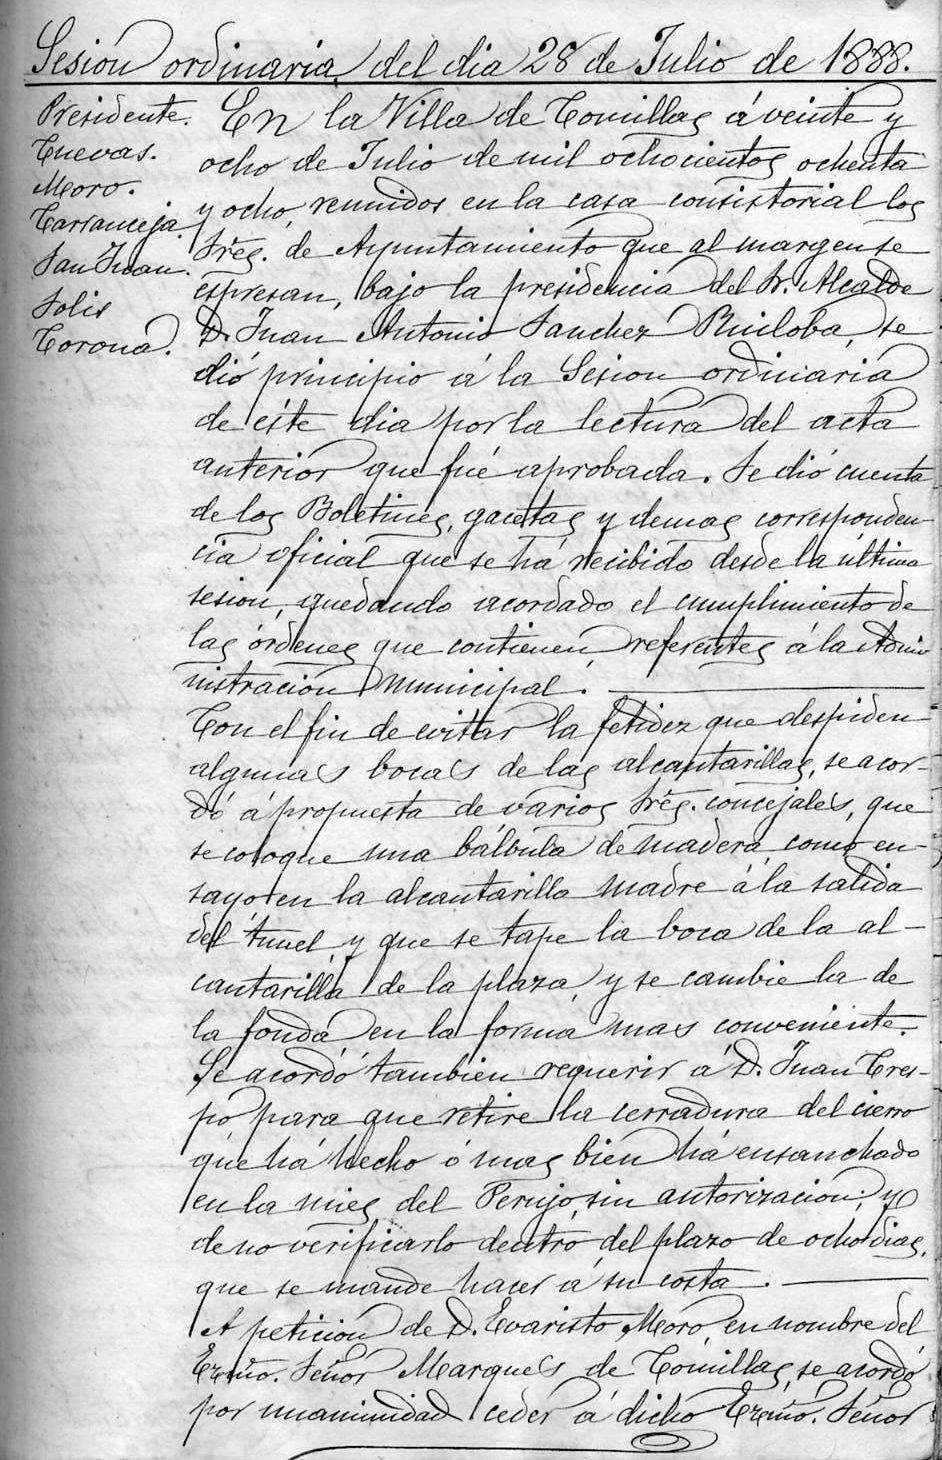 Sesion ordinaria del dia 28 de Julio de 1888.
Presidente.
Cuevas.
Moro.
Carranceja.
San Juan.
Solis
Corona.
En la Villa de Comillas á veinte y
ocho de Julio de mil ochocientos ochenta
y ocho, reunidos en la casa consistorial los
Sres. de Ayuntamiento que al margen se
espresan, bajo la presidencia del Sr. Alcalde
D. Juan Antonio Sanchez Ruiloba, se
dió principio á la Sesion ordinaria
de éste dia por la lectura del acta
anterior que fué aprobada. Se dió cuenta
de los Boletines, gacetas y demas corresponden-
cia oficial que se há recibido desde la última
sesion, quedando acordado el cumplimiento de
las órdenes que contienen referentes á la Admi
nistración municipal.
Con el fin de evitar la fetidez que despiden
algunas bocas de las alcantarillas, se acor-
dó á propuesta de varios Sres. concejales, que
se coloque una bálbula de madera, como en-
sayo en la alcantarilla madre á la salida
del túnel, y que se tape la boca de la al-
cantarilla de la plaza, y se cambie la de
la fonda en la forma mas conveniente.
Se acordó tambien requerir á D. Juan Cres-
po para que retire la cerradura del cierro
que há hecho ó mas bien há ensanchado
en la mies del Perujo, sin autorizacion; y
de no verificarlo dentro del plazo de ocho dias,
que se mande hacer á su costa.
A peticion de D. Evaristo Moro, en nombre del
Ezcmo. Señor Marques de Comillas, se acordó
por unanimidad ceder á dicho Ezcmo. Señor